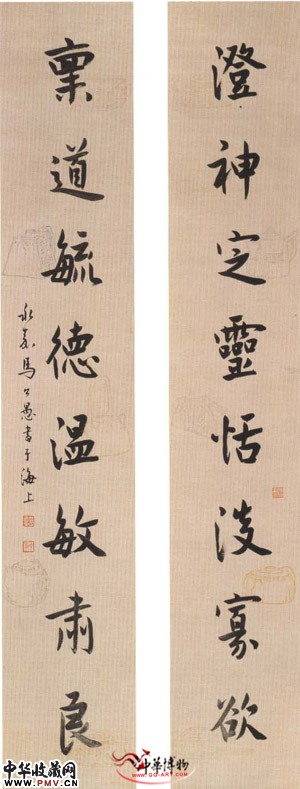 澄神定靈恬淡寡欲
稟道毓德温敏肅良
永嘉馬公愚書于海上
中华收藏网
WWW.PMV.CN
中华博物
WWW.GG-ART.COM